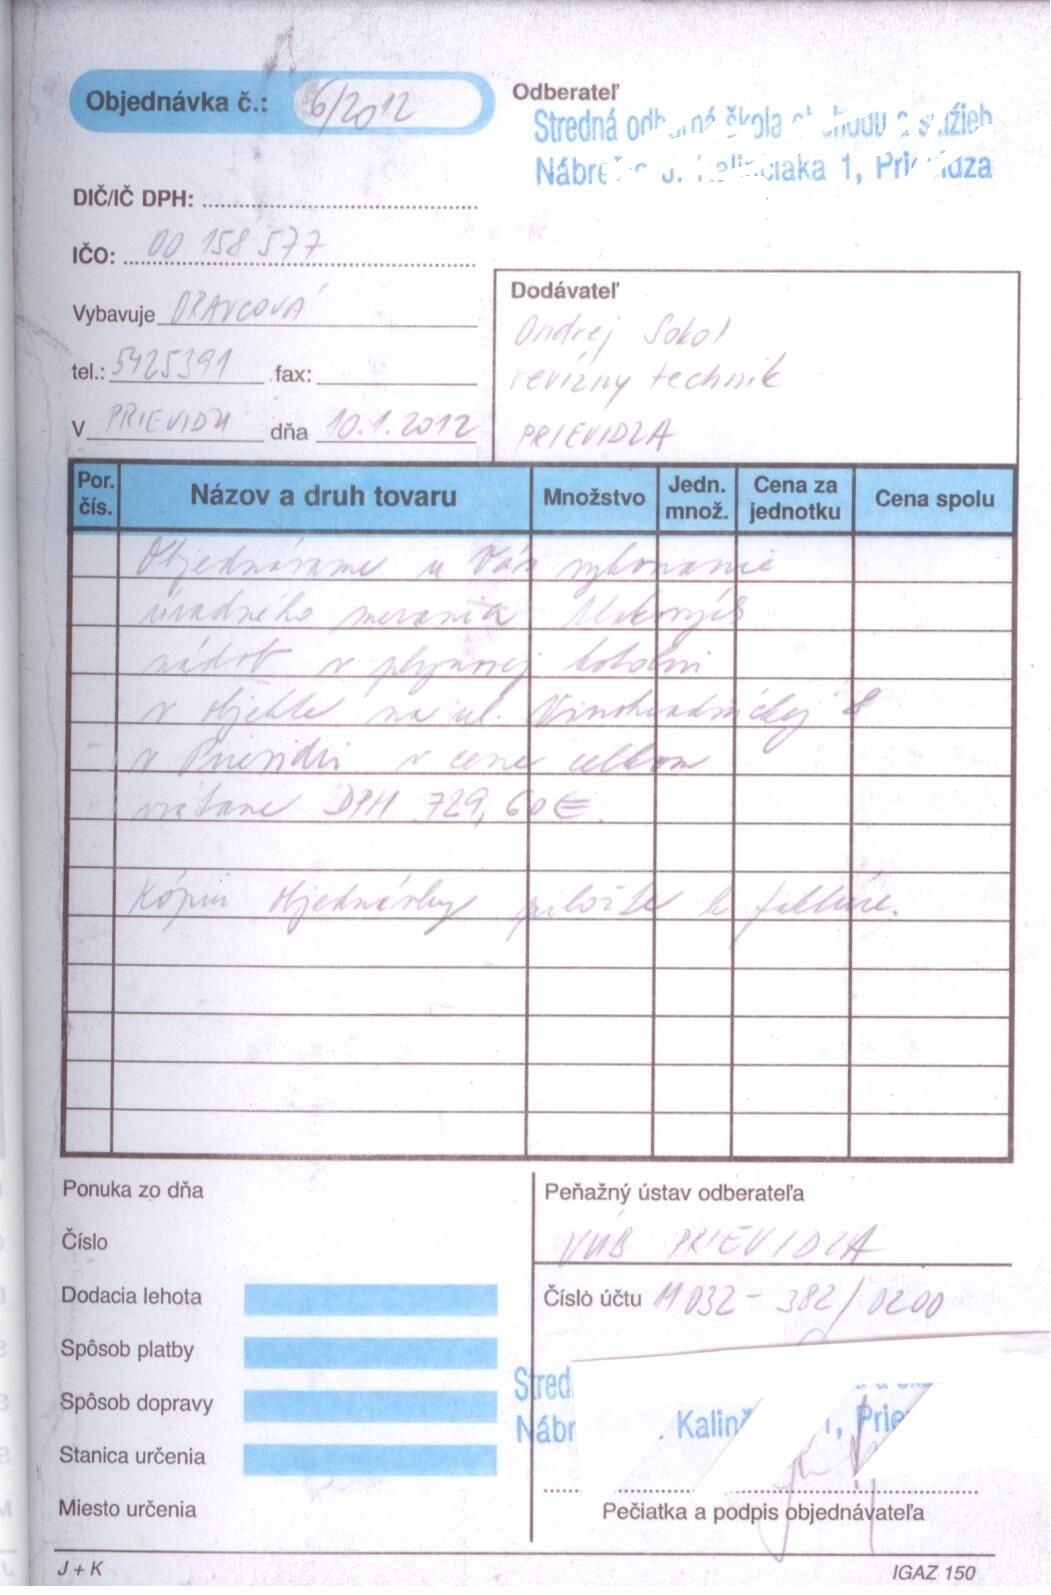 Objednávka č.: 6/2012
Odberateľ
Stredná škola služieb
Kalinčiaka 1, Prievidza
DIČ/IČ DPH:
IČO: 00 158 577
Vybavuje ORAVCOVÁ
tel.: 5425391 fax:
V PRIEVIDZI dňa 10.1.2012
Dodávateľ
Ondrej Sokol
revízny technik
PRIEVIDZA
Por. čís. Názov a druh tovaru Množstvo Jedn. množ. Cena za jednotku Cena spolu
Objednávame u Vás vykonanie
úradného merania tlakových
nádob v plynovej kotolni
v objekte na ul. Vinohradníckej 8
v Prievidzi v cene celkom
vrátane DPH 729,60 €.
Kópiu objednávky priložte k faktúre.
Ponuka zo dňa
Číslo
Dodacia lehota
Spôsob platby
Spôsob dopravy
Stanica určenia
Miesto určenia
Peňažný ústav odberateľa
VÚB PRIEVIDZA
Číslo účtu 11032-382/0200
Pečiatka a podpis objednávateľa
J + K
IGAZ 150